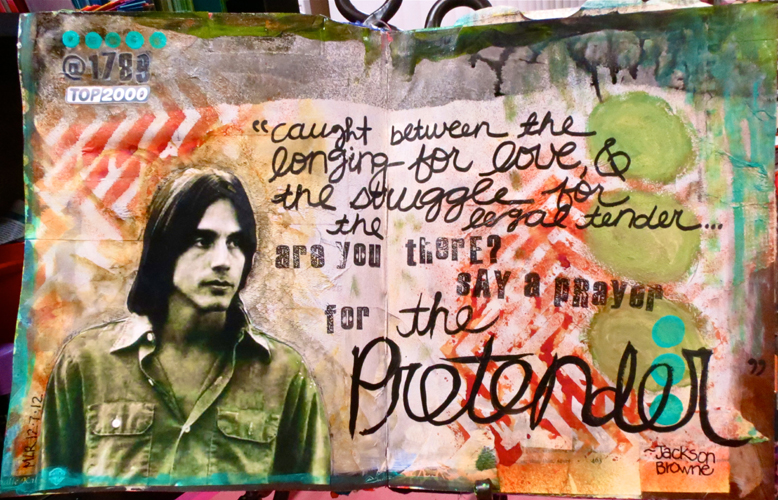 @1793
TOP2000
"caught between the
longing for love, &
the struggle for
the legal tender...
are you there?
SAY a pRayer
for the
Pretender"
~Jackson
Browne